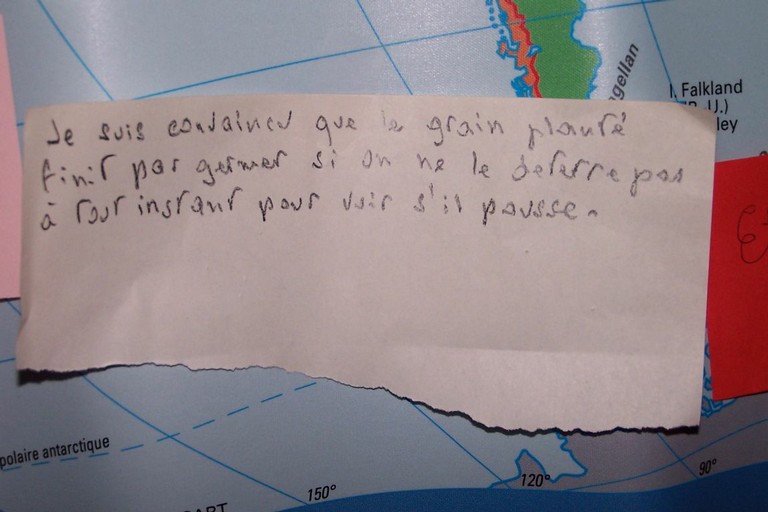 I. Falkland
agellan
ley
Je suis convaincu que le grain planté
finit par germer si on ne le deterre pas
à tout instant pour voir s'il pousse.
polaire antarctique
150°
120°
90°